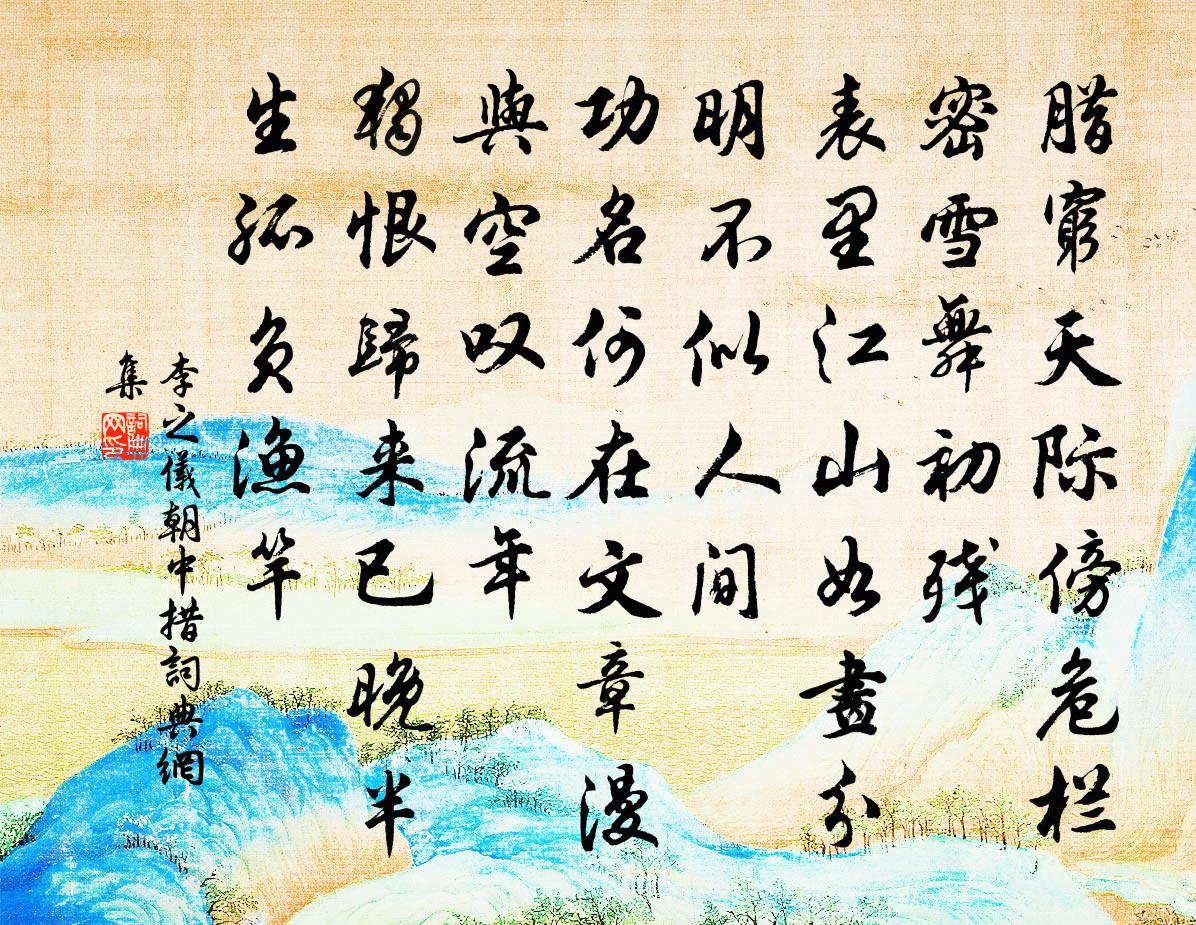 腊窮天际傍危栏
密雪舞初残
表里江山如畫分
明不似人间
功名何在文章漫
與空叹流年
獨恨歸来已晚半
生孤负漁竿
李之儀朝中措詞典網
集
詞典網印